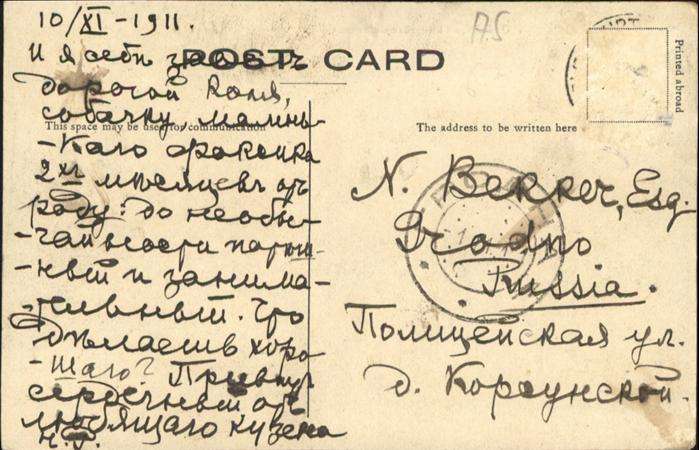 10/XI - 1911.
И я себѣ завелъ
дорогой Коля,
собачку, малень-
-каго фоксика
2хъ мѣсяцевъ отъ
роду: до необы-
-чайности потѣш-
-ный и занима-
-тельный. Что
дѣлаешь хоро-
-шаго? Привѣтъ
сердечный отъ
любящаго кузена
POST CARD
This space may be used for communication
The address to be written here
Printed abroad
AS
N. Bekker, Esq.
Grodno
Russia.
Полицейская ул.
д. Корсунской.